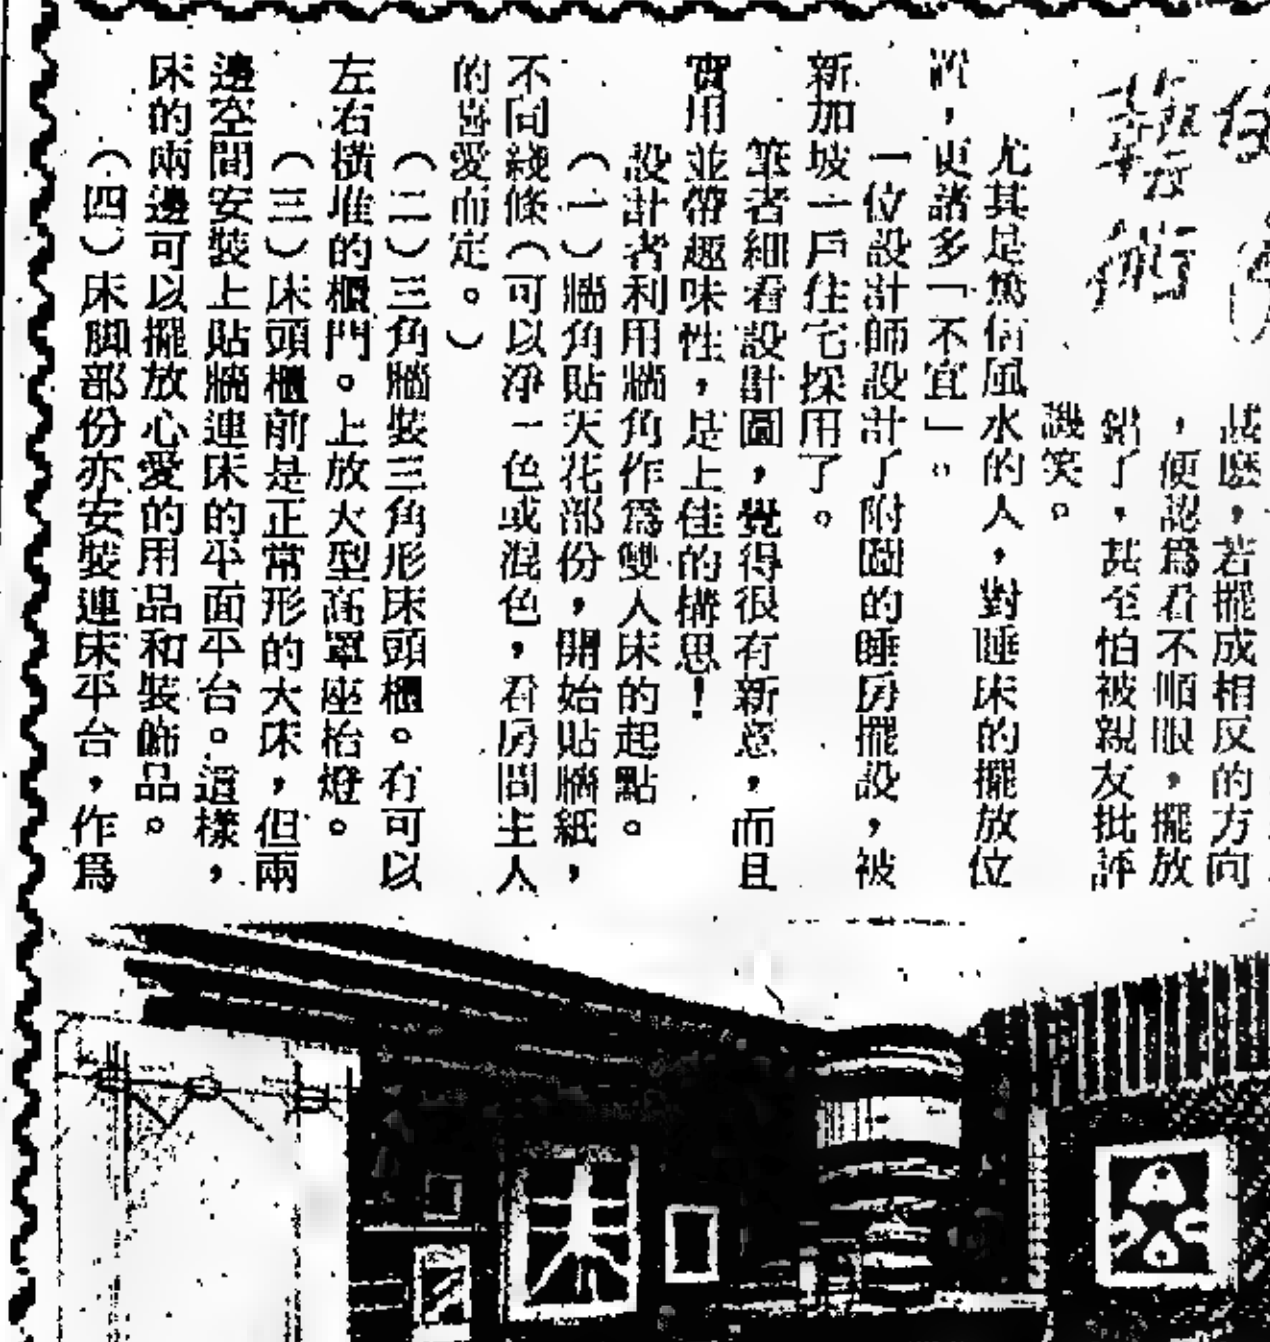 甚麽，若擺成相反的方向
，便認爲看不順眼，擺放
錯了，甚至怕被親友批評
譏笑。
尤其是篤信風水的人，對睡床的擺放位
置，更諸多「不宜」。
一位設計師設計了附圖的睡房擺設，被
新加坡一戶住宅採用了。
筆者細看設計圖，覺得很有新意，而且
實用並帶趣味性，是上佳的構思！
設計者利用牆角作爲雙人床的起點。
（一）牆角貼天花部份，開始貼牆紙，
不同綫條（可以淨一色或混色，看房間主人
的喜愛而定。）
（二）三角牆裝三角形床頭櫃。有可以
左右橫堆的櫃門。上放大型高罩座枱燈。
（三）床頭櫃前是正常形的大床，但兩
邊空間安裝上貼牆連床的平面平台。這樣，
床的兩邊可以擺放心愛的用品和裝飾品。
（四）床脚部份亦安裝連床平台，作爲